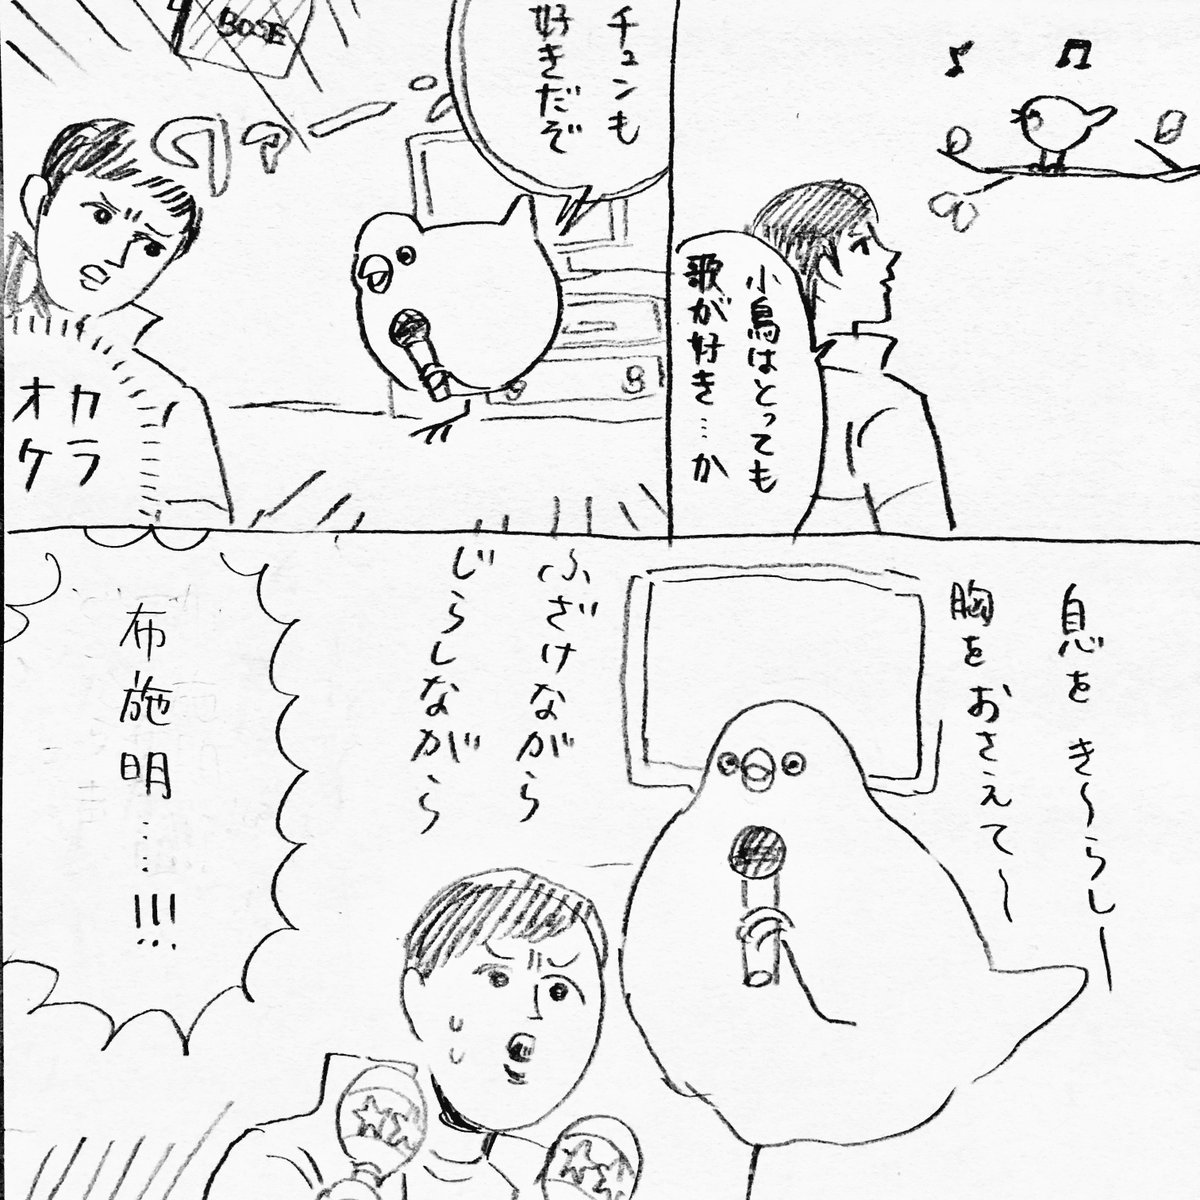 小鳥はとっても
歌が好き…か
チュンも
好きだぞ
BOSE
カラ
オケ
息をき〜らし〜
胸をおさえて〜
ふざけながら
じらしながら
布施明……!!!